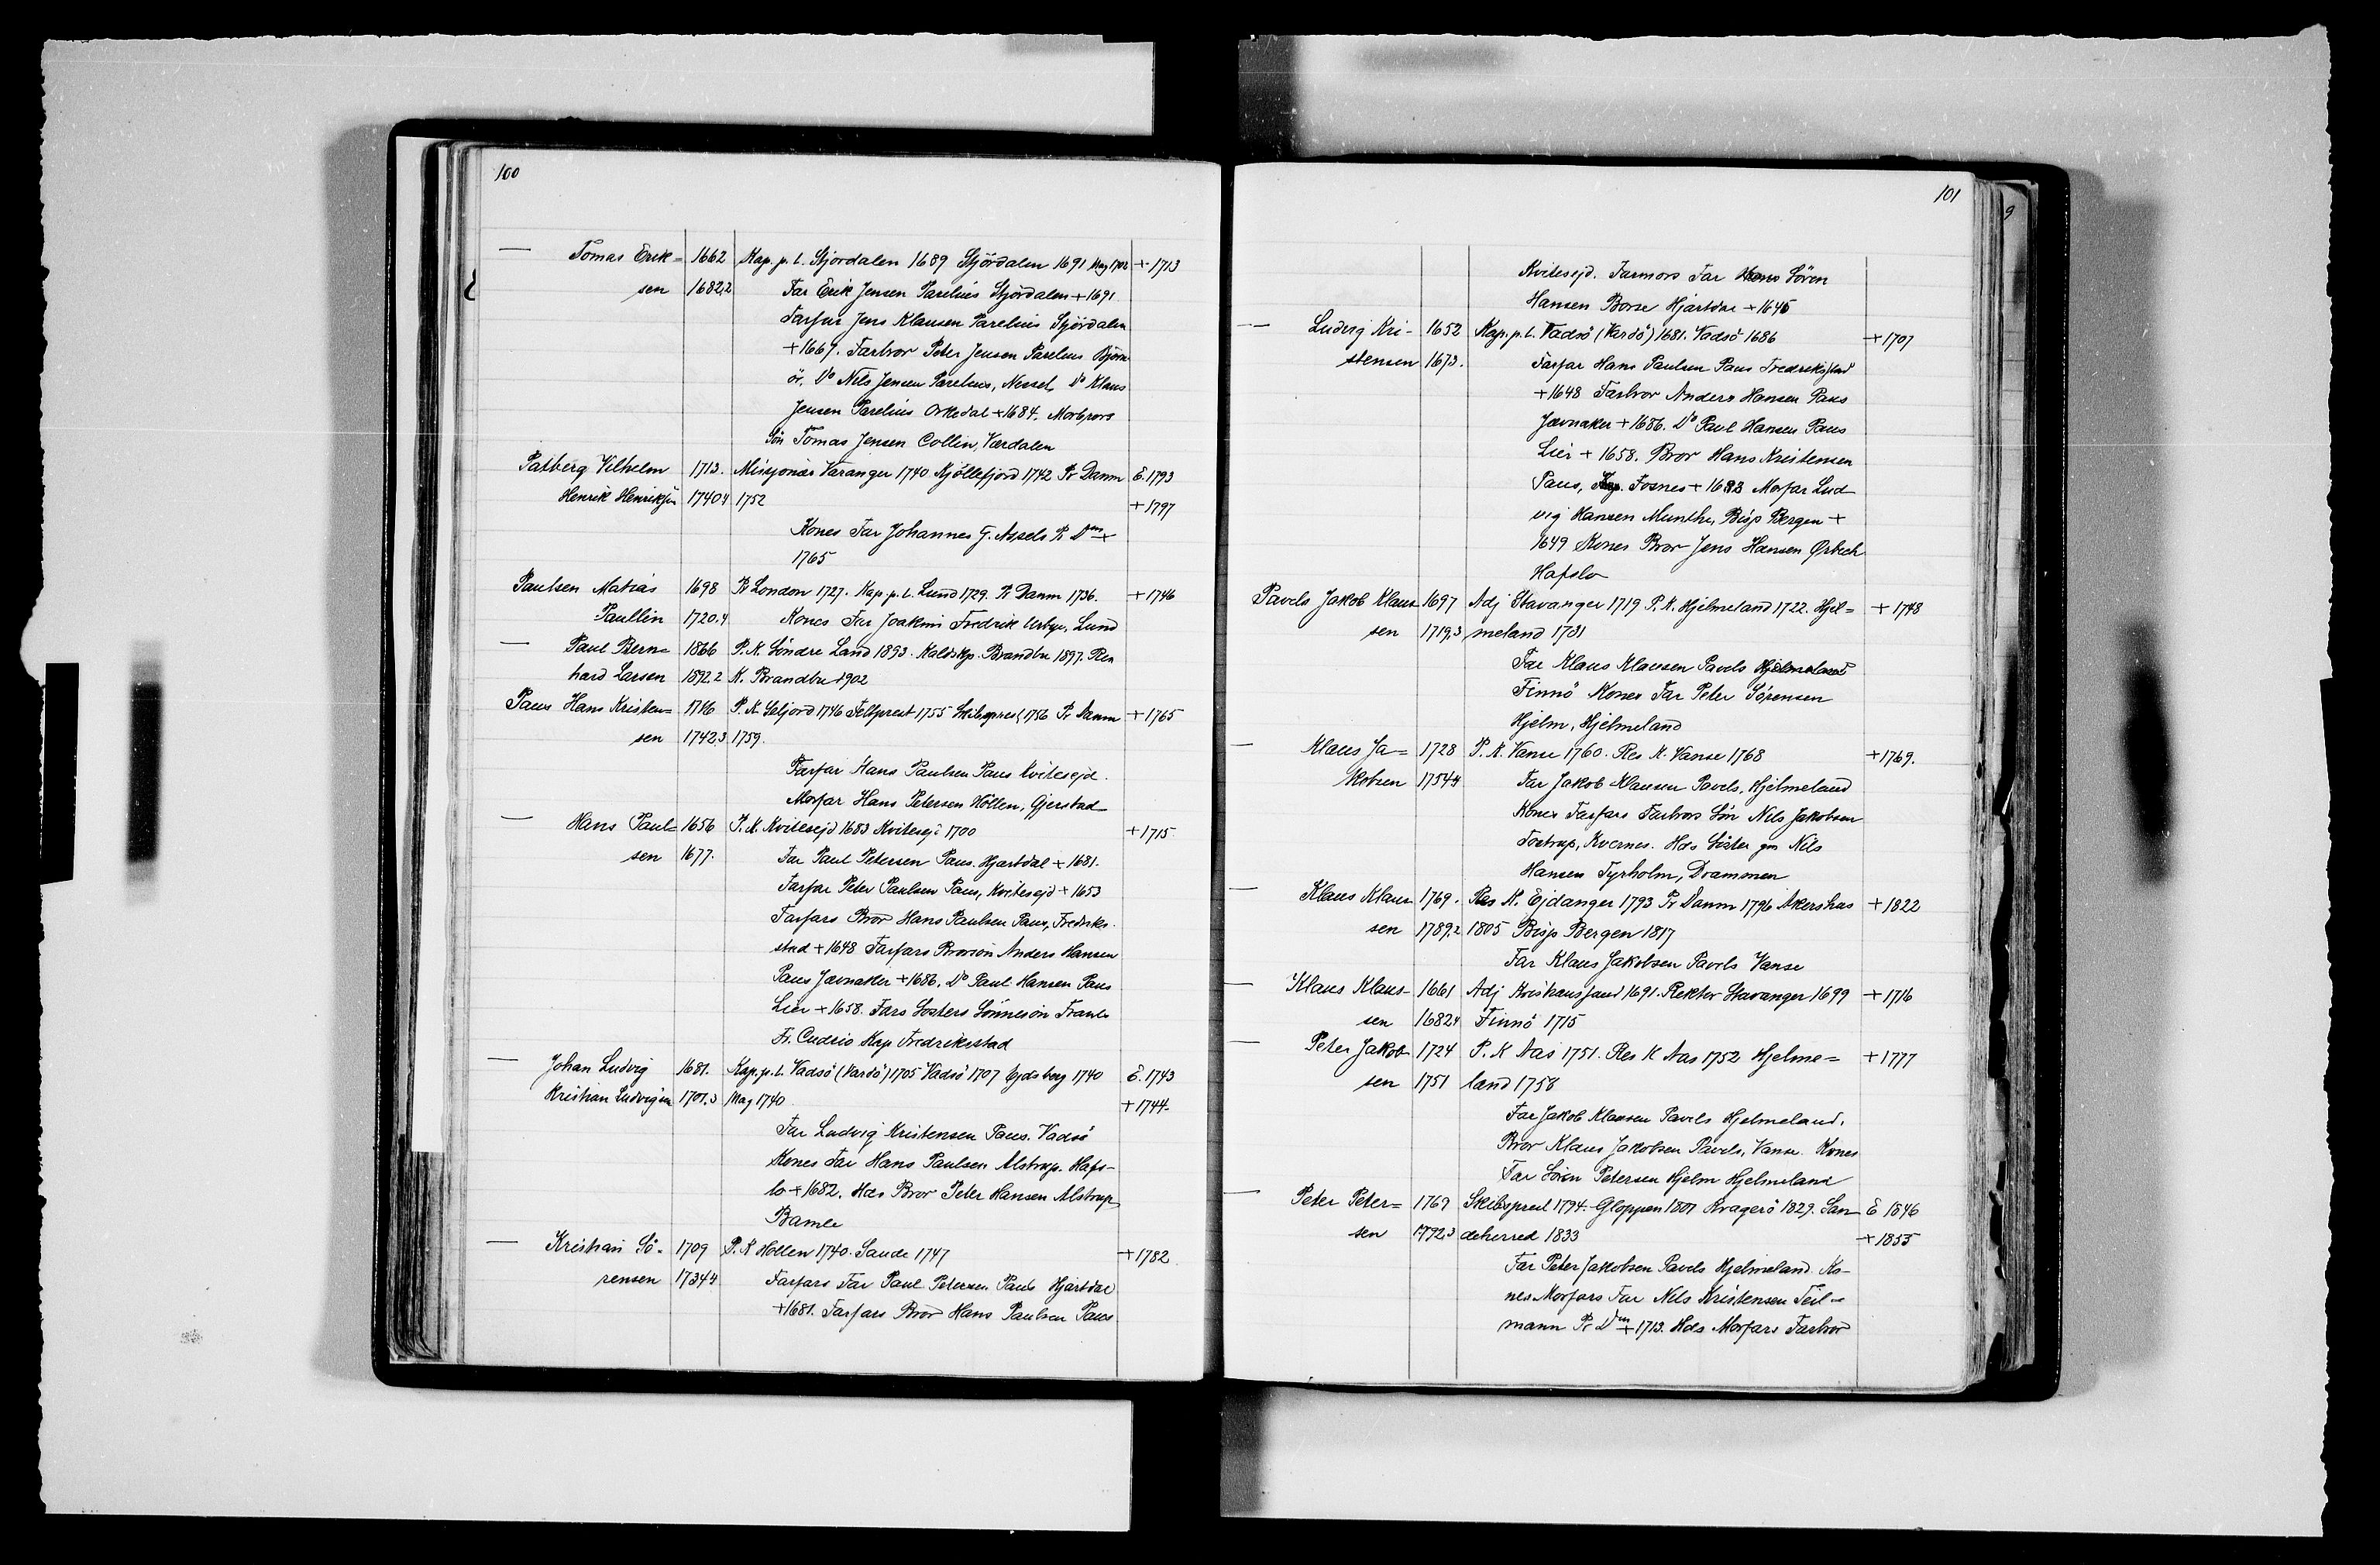 100
— Tomas Erik= 1662 Kap. p. l. Stjørdalen 1689 Stjørdalen 1691 Mag 1702 +1713
sen 1682.2 Far Erik Jensen Parelius Stjørdalen +1691
Farfar Jens Klausen Parelius Stjørdalen
+1667. Farbror Peter Jensen Parelius Bjørn
ör, Do Nils Jensen Parelius, Nesset, Do Klaus
Jensen Parelius Orkedal +1684. Morbrors
Sön Tomas Jensen Collin, Værdalen
Patberg Vilhelm 1713. Misjonær Varanger 1740 Kjöllefjord 1742 Pr Danm E. 1793
Henrik Henriksen 1740.4 1752 +1797
Kones Far Johannes G. Assels Pr Dm +
1765
Paulsen Matias 1698 Pr London 1727. Kap. p. l. Lund 1729. Pr Danm 1736. +1746
Paullin 1720.4 Kones Far Joakim Fredrik Urbye, Lund
— Paul Bern= 1866 P. K. Söndre Land 1893. Kaldskp. Brandbu 1897. Res
hard Larsen 1892.2 K. Brandbu 1902
Paus Hans Kristen= 1716 P. K. Seljord 1746 Feltprest 1755 Skibsprest 1756 Pr Danm +1765
sen 1742.3 1759.
Farfar Hans Paulsen Paus Kvitesejd.
Morfar Hans Petersen Höllen, Gjerstad
— Hans Paul= 1656 P. K. Kvitesejd 1683 Kvitesejd 1700 +1715
sen 1677. Far Paul Petersen Paus. Hjartdal +1681.
Farfar Peter Paulsen Paus, Kvitesejd +1653
Farfars Bror Hans Paulsen Paus, Fredriks-
stad +1648 Farfars Brorsön Anders Hansen
Paus Jævnaker +1686, Do Paul Hansen Paus
Lier +1658. Fars Søsters Sönnesön Frants
Fr. Cudrio Kap Fredrikstad
— Johan Ludvig 1681. Kap. p. l. Vadsö (Vardö) 1705 Vadsö 1707 Ejdsberg 1740 E. 1743
Kristian Ludvigsen 1701.3 Mag 1740 +1744.
Far Ludvig Kristensen Paus. Vadsö
Kones Far Hans Paulsen Alstrup. Hafs-
lo +1682. Hds Bror Peter Hansen Alstrup
Bamle
— Kristian Sö- 1709 P. K Hollen 1740. Saude 1747 +1782.
rensen 1734.4 Farfars Far Paul Petersen Paus Hjartdal
+1681. Farfars Bror Hans Paulsen Paus
101
Kvitesejd. Farmors Far Hans Sören
Hansen Borse Hjartdal +1645
— Ludvig Kri- 1652 Kap. p. l. Vadsö (Vardö) 1681. Vadsö 1686 +1707
stensen 1673. Farfar Hans Paulsen Paus Fredriksstad
+1648 Farbror Anders Hansen Paus
Jævnaker +1686. Do Paul Hansen Paus
Lier +1658. Bror Hans Kristensen
Paus, Fosnes +1683 Morfar Lud
vig Hansen Munthe, Bisp Bergen +
1649 Kones Bror Jens Hansen Ørbech
Hafslo
Pavels Jakob Klaus 1697 Adj Stavanger 1719 P. K. Hjelmeland 1722. Hjel= +1748
sen 1719.3 meland 1731
Far Klaus Klausen Pavels Hjelmeland
Finnö Kones Far Peter Sörensen
Hjelm, Hjelmeland
— Klaus Ja= 1728 P. K. Vanse 1760. Res K. Vanse 1768 +1769.
kobsen 1754.4 Far Jakob Klausen Pavels, Hjelmeland
Kones Farfars Farbrors Sön Nils Jakobsen
Tostrup, Kvernes. Hds Söster gm Nils
Hansen Tyrholm, Drammen
— Klaus Klau- 1769. Res K. Ejdanger 1793 Pr Danm 1796 Akershus +1822
sen 1789.2 1805 Bisp Bergen 1817
Far Klaus Jakobsen Pavels Vanse
— Klaus Klaus 1661 Adj Kristiansand 1691. Rektor Stavanger 1699 +1716
sen 1682.4 Finnö 1715
— Peter Jakob 1724 P. K Aas 1751. Res K Aas 1752 Hjelme= +1777
sen 1751 land 1758
Far Jakob Klausen Pavels Hjelmeland.
Bror Klaus Jakobsen Pavels, Vanse. Kones
Far Sören Petersen Hjelm Hjelmeland
— Peter Peter= 1769 Skibsprest 1794. Gloppen 1801 Kragerö 1829. San E 1846
sen 1792.3 deherred 1833 +1855
Far Peter Jakobsen Pavels Hjelmeland. Ko-
nes Morfars Far Nils Kristensen Teil-
mann Pr Dm +1713. Hds Morfars Farbror
9